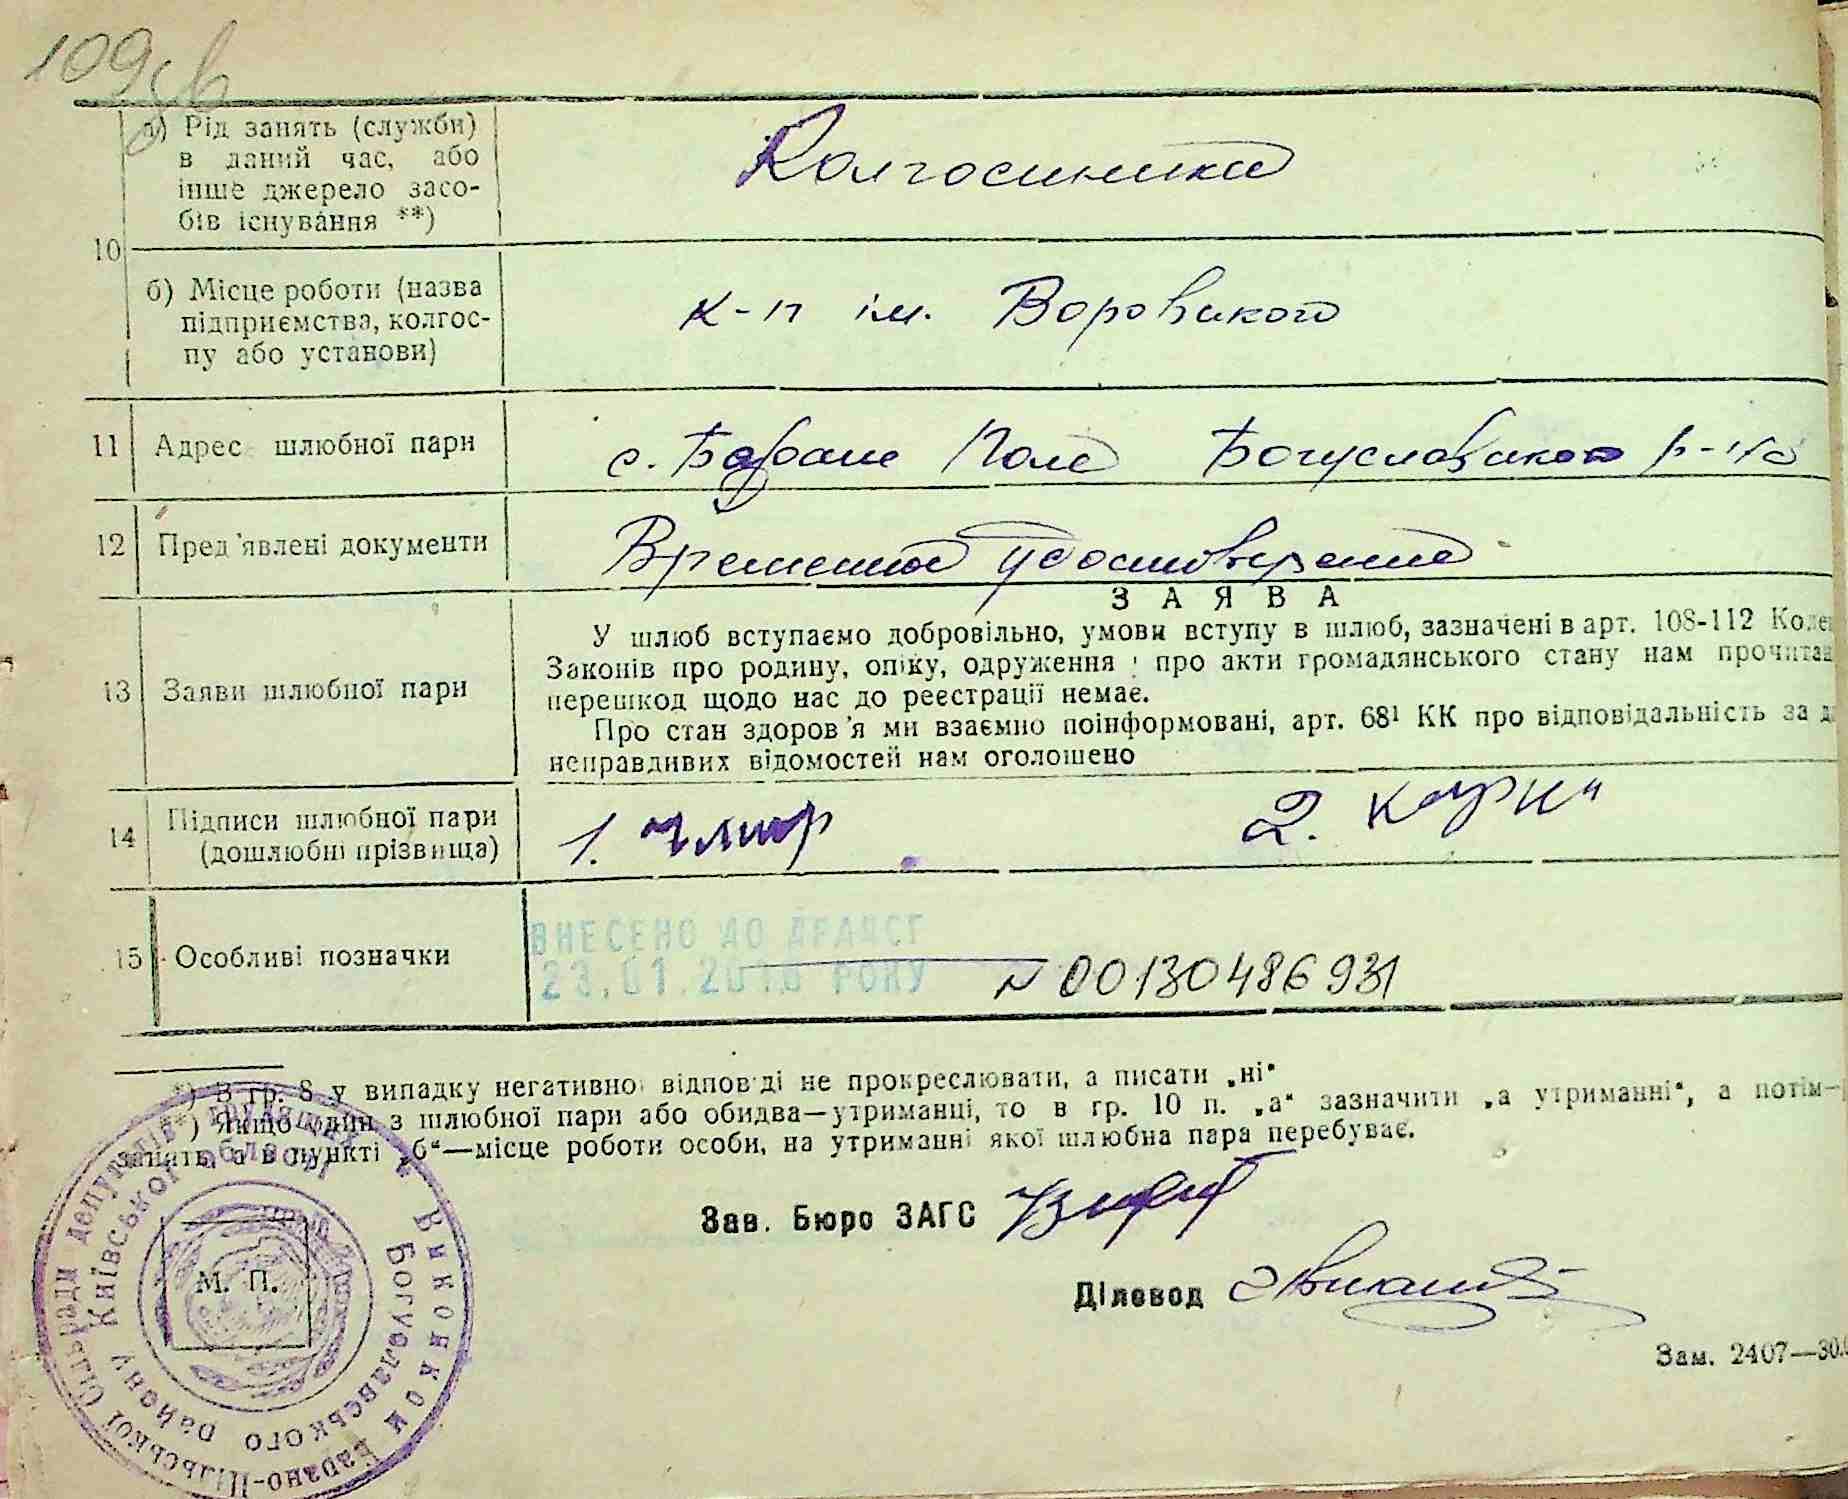 109 зв
10
а) Рід занять (служби)
в даний час, або
інше джерело засо-
бів існування **)
Колгоспники
б) Місце роботи (назва
підприємства, колгос-
пу або установи)
к-п ім. Воровського
11 Адрес шлюбної пари
с. Баране Поле Богуславського р-на
12 Пред'явлені документи
Временное удостоверение
13 Заяви шлюбної пари
ЗАЯВА
У шлюб вступаємо добровільно, умови вступу в шлюб, зазначені в арт. 108-112 Коде
Законів про родину, опіку, одруження і про акти громадянського стану нам прочитан
перешкод щодо нас до реєстрації немає.
Про стан здоров'я ми взаємно поінформовані, арт. 68¹ КК про відповідальність за д
неправдивих відомостей нам оголошено
14 Підписи шлюбної пари
(дошлюбні прізвища)
1.
2.
15 Особливі позначки
ВНЕСЕНО ДО ДРАЦСГ
23.01.2018 РОКУ
N 00130486931
*) В гр. 8 у випадку негативної відповіді не прокреслювати, а писати „ні“
**) Якщо один з шлюбної пари або обидва—утриманці, то в гр. 10 п. „а“ зазначити „а утриманні“, а потім—
занять, а в пункті „б“—місце роботи особи, на утриманні якої шлюбна пара перебуває.
Зав. Бюро ЗАГС
Діловод
М. П.
Виконком Барано-Пільської Сільради депутатів трудящих
Богуславського району Київської області
Зам. 2407—30.